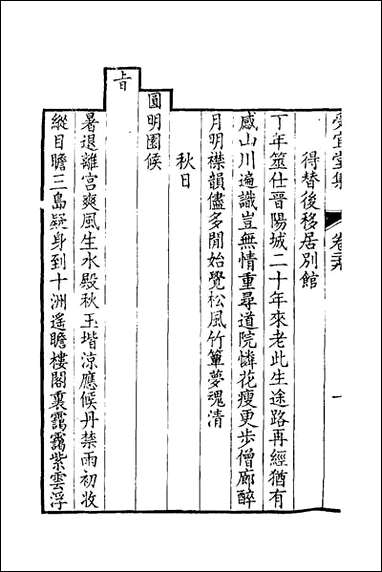 受宜堂集 卷三六 一
得替後移居別館
丁年筮仕晉陽城二十年來老此生途路再經猶有
感山川遍識豈無情重尋道院憐花瘦更步僧廊醉
月明襟韻儘多閒始覺松風竹簟夢魂清
秋日
圓明園候
旨
暑退離宮爽風生水殿秋玉堦涼應候丹禁雨初收
縱目瞻三島疑身到十洲遙瞻樓閣裏靄靄紫雲浮